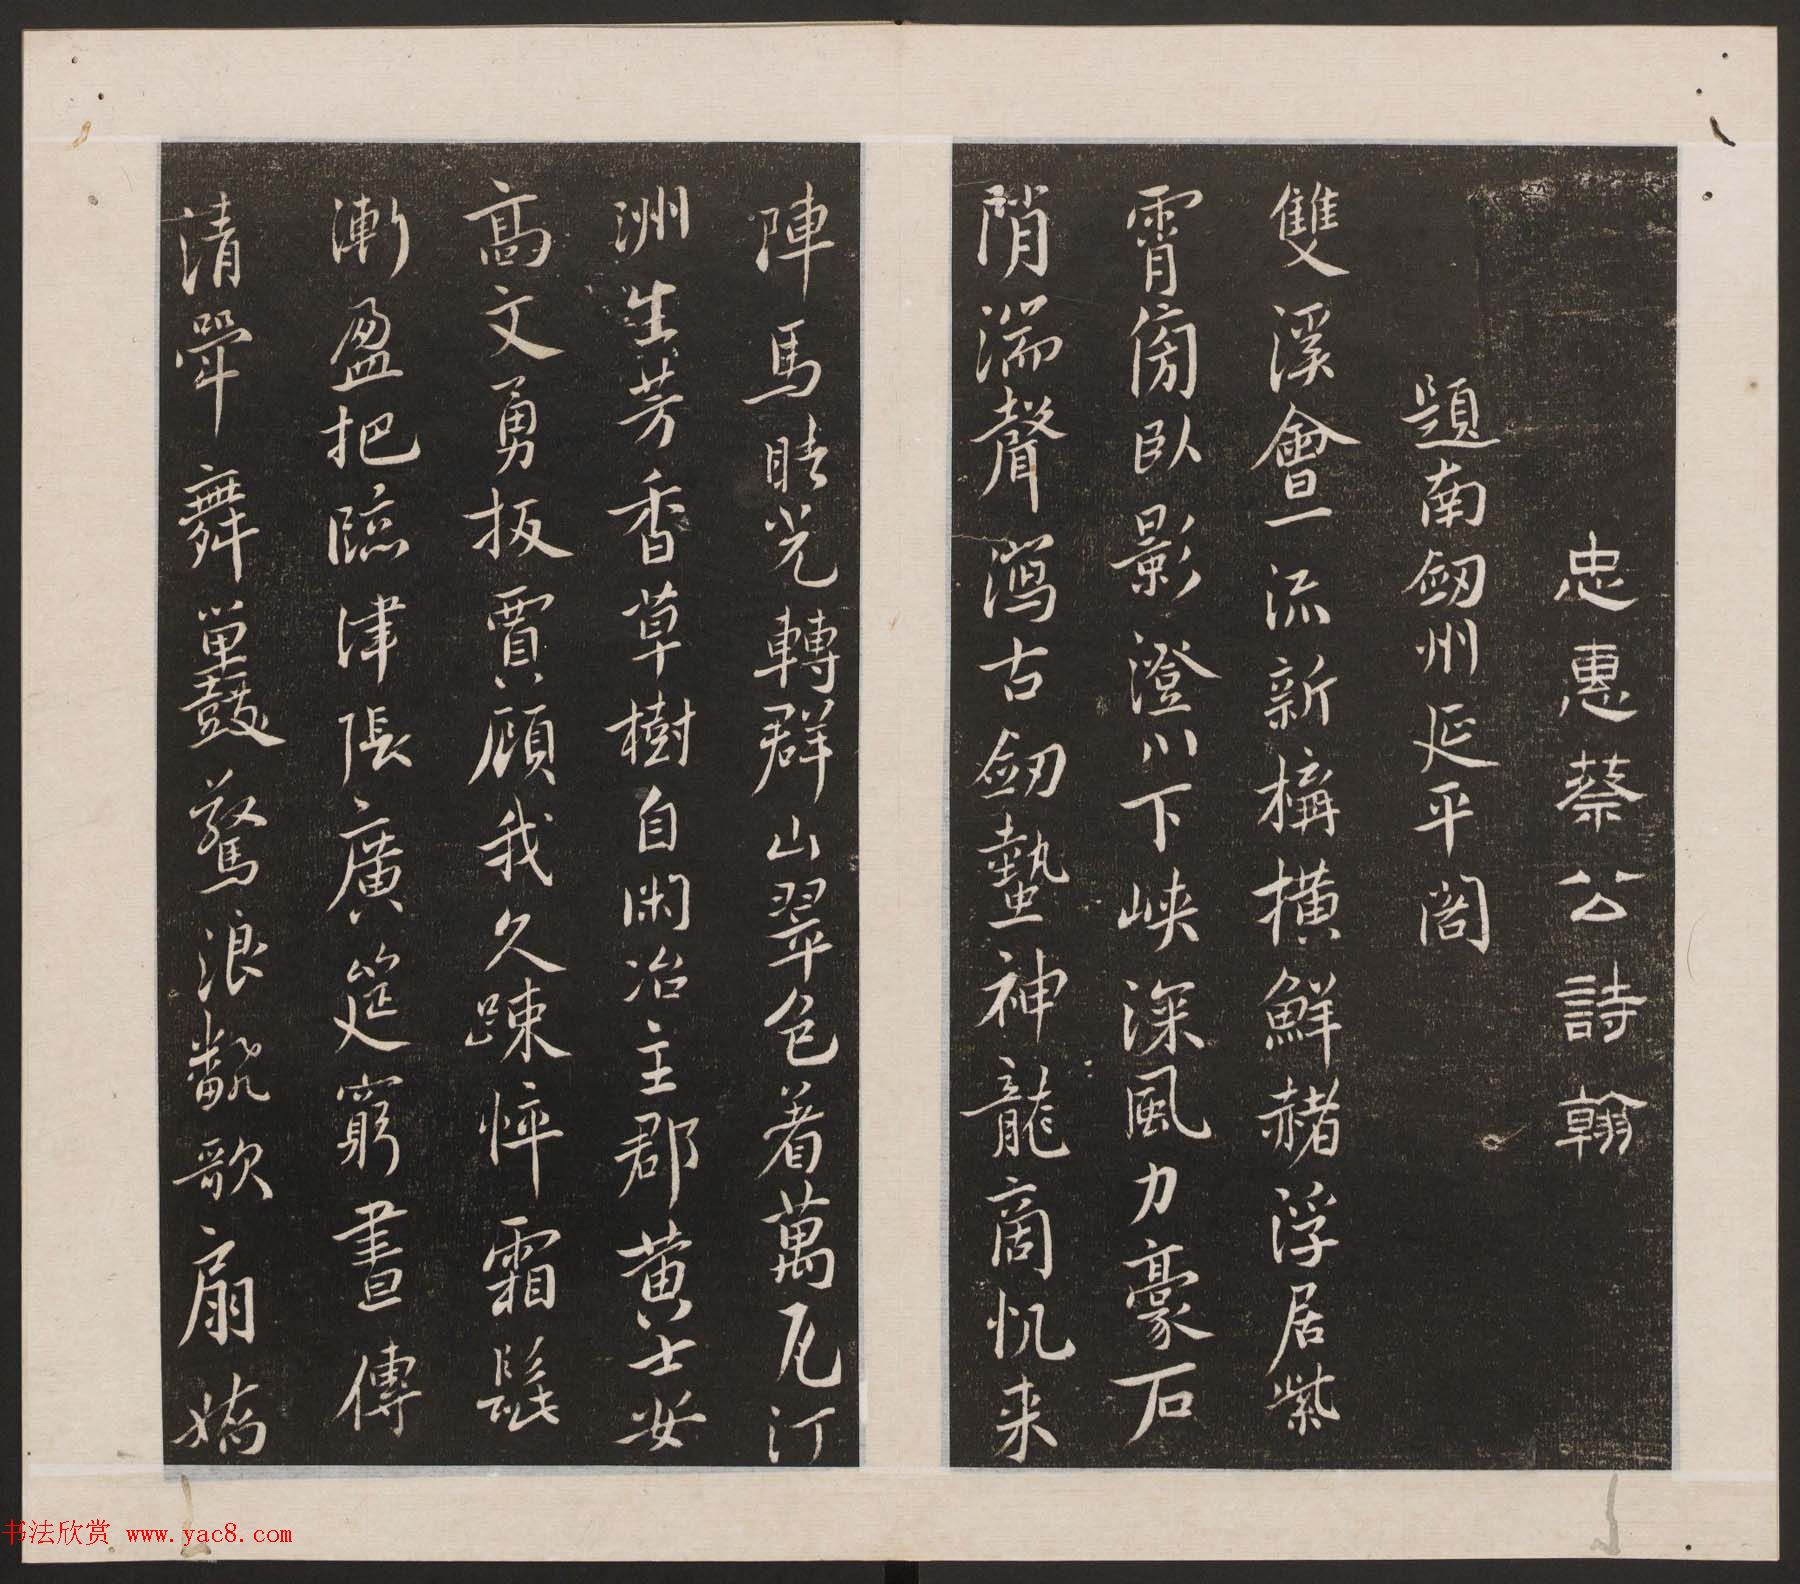 忠惠蔡公詩翰
題南劒州延平閣
雙溪會一流新構橫鮮赭浮居紫
霄傍臥影澄川下峽深風力豪石
陗湍聲瀉古劒蟄神龍商帆来
陣馬晴光轉群山翠色着萬瓦汀
洲生芳香草樹自閑冶主郡黄士安
高文勇扳賈顧我久踈悴霜髭
漸盈把臨津張廣筵窮晝傳
清斝舞鼍鼓驚浪翻歌扇嬌
书法欣赏 www.yac8.com